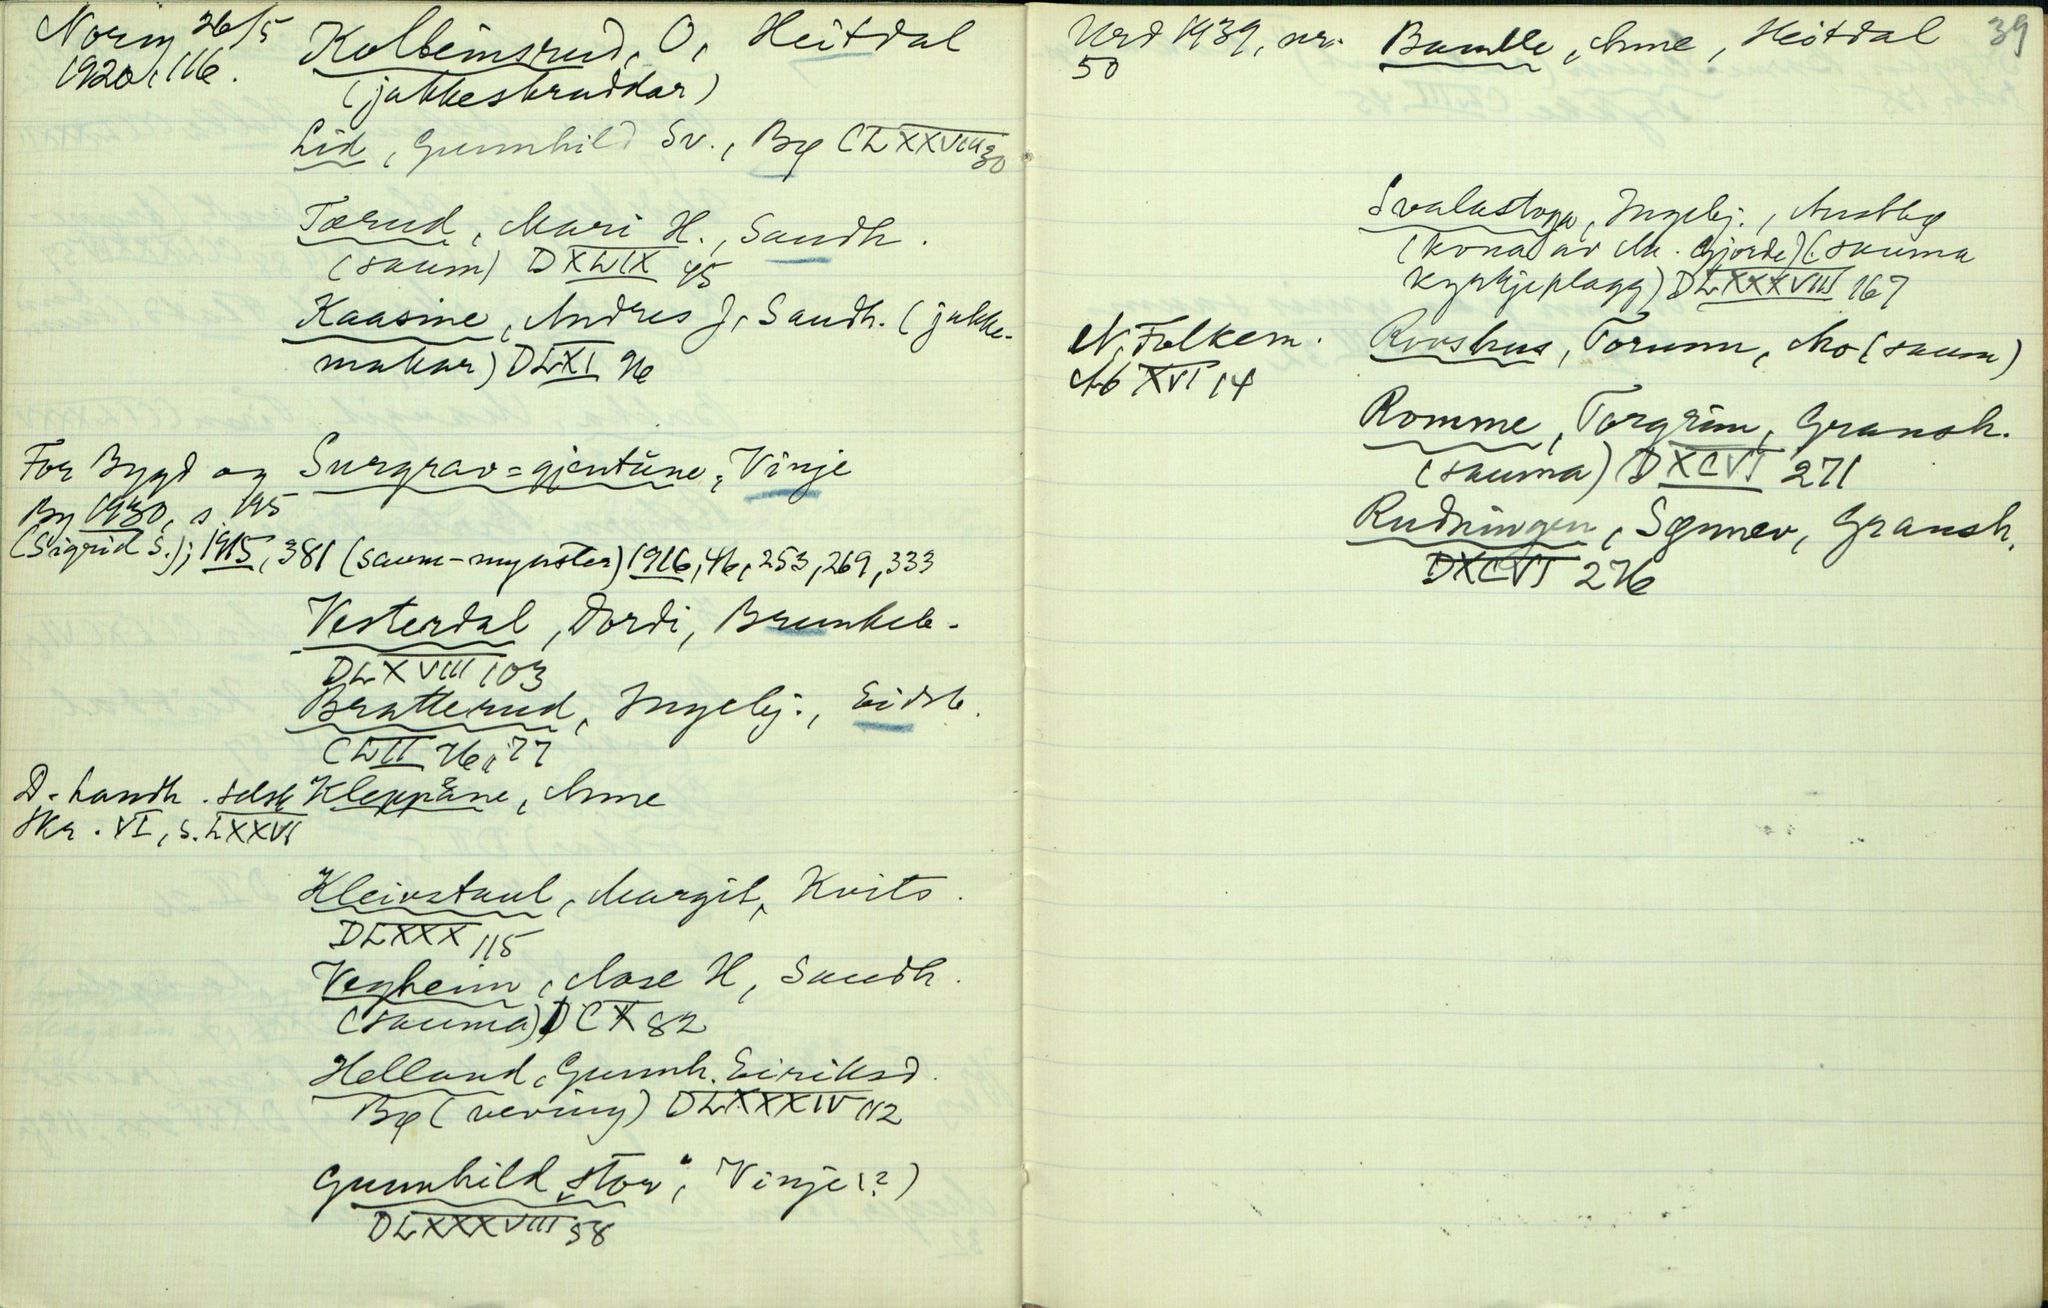 Norig 26/5 Kolbeinsrud, O, Heitdal
1920, 116. (jakkeskruddar)
Lid, Gunnhild Sv., Bø CLXXVIII 30
Tærud, Mari H., Saudh.
(saum) DXLIX 45
Kaasine, Andres J, Saudh. (jakke-
makar) DLXI 96
For Bygd og Surgrav=gjentune, Vinje
By 1930, s. 195
(Sigrid S.); 1915, 381 (saum-mynster) 1916, 46, 253, 269, 333
Vesterdal, Dordi, Brunkeb.
DLXVIII 103
Bratterud, Ingebj., Eidsb.
CLII 76, 77
D. landh. selsk Kleppåne, Anne
Skr. VI, s. LXXVI
Kleivstaul, Margit, Kvits.
DLXXX 115
Vegheim, Aase H, Saudh.
(sauma) DCX 82
Helland, Gunnh. Eiriksd.
Bø (veving) DLXXXIV 112
Gunnhild „stor“, Vinje (?)
DLXXXVIII 58
39
Urd 1939, nr. Bamle, Anne, Heitdal
50
Svalastoga, Ingebj., Austbø
(kona av M. Gjorde) (sauma
kyrkjeplagg) DLXXXVIII 167
N. Folkem. Rooshus, Torunn, Mo (saum)
Ab XVI 14
Romme, Torgrim, Gransh.
(sauma) DXCVI 271
Rudningen, Synnev, Gransh.
DXCVI 276